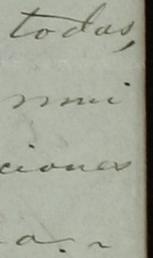 todas,
mui
ciones
a.~